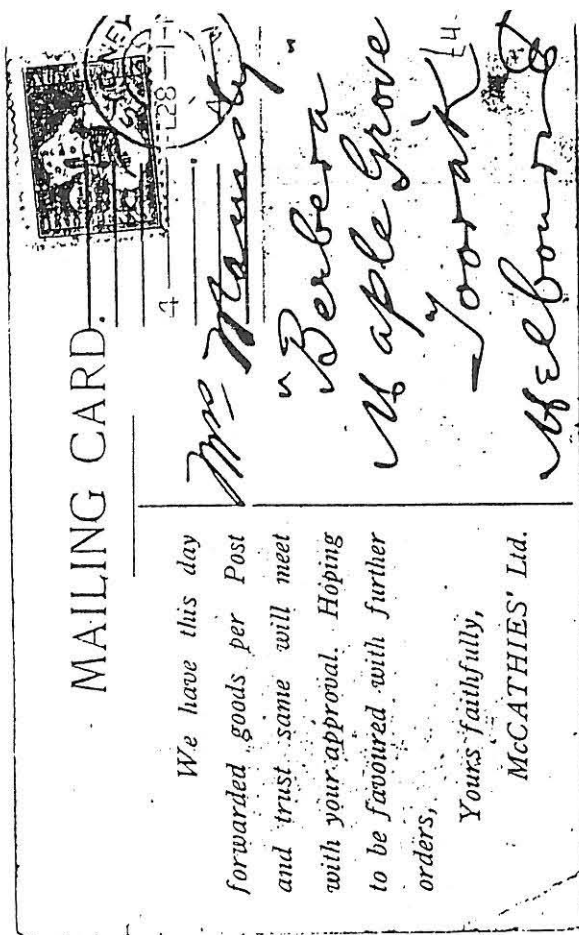 MAILING CARD.
We have this day
forwarded goods per Post
and trust same will meet
with your approval. Hoping
to be favoured with further
orders,
Yours faithfully,
McCATHIES' Ltd.
Mrs
"Berbera"
Maple Grove
Toorak
Melbourne
SYDNEY
4
28